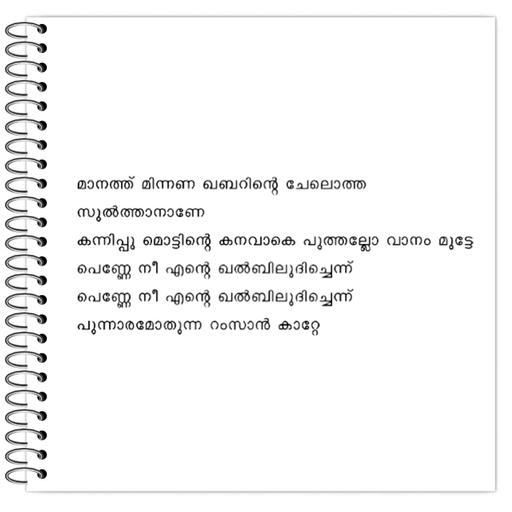 മാനത്ത് മിന്നണ ഖബറിന്റെ ചേലൊത്ത
സുൽത്താനാണേ
കന്നിപ്പൂ മൊട്ടിന്റെ കനവാകെ പൂത്തല്ലോ വാനം മുട്ടേ
പെണ്ണേ നീ എന്റെ ഖൽബിലുദിച്ചെന്ന്
പെണ്ണേ നീ എന്റെ ഖൽബിലുദിച്ചെന്ന്
പുന്നാരമോതുന്ന റംസാൻ കാറ്റേ